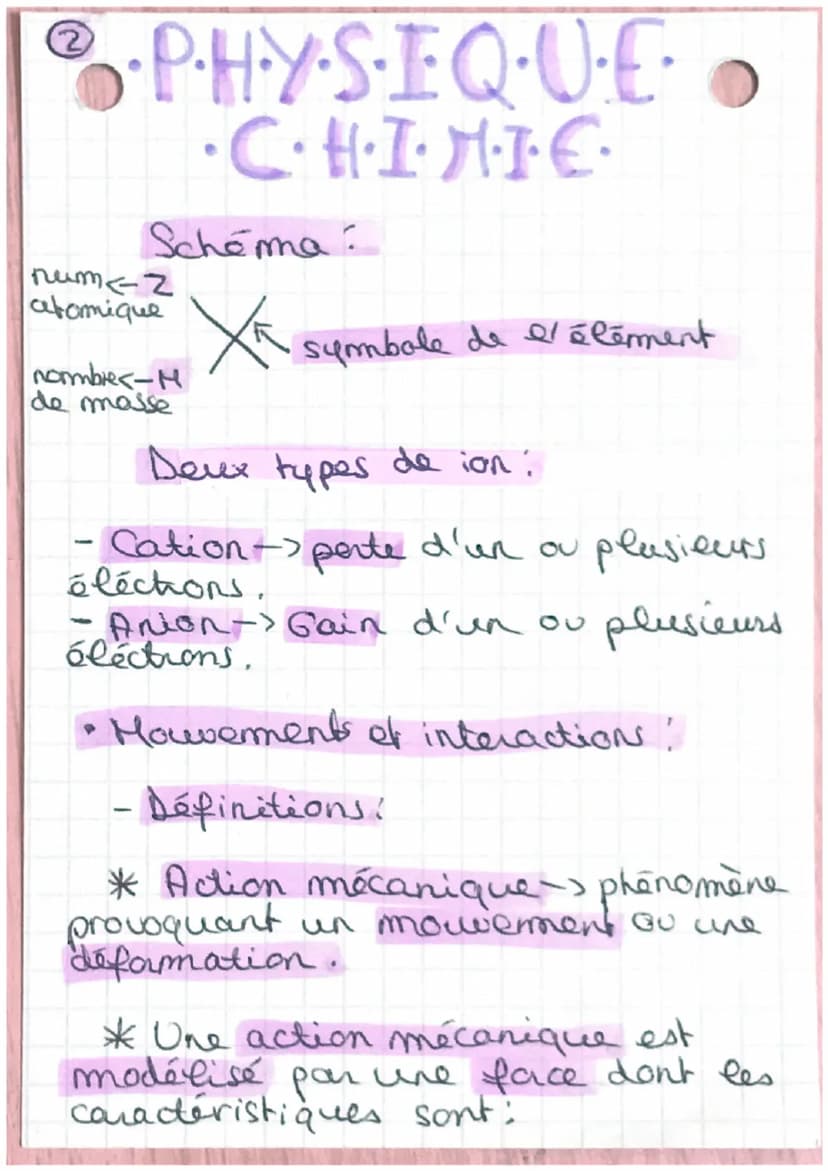 2
·P·H·Y·S·I·Q·U·E·
·C·H·I·M·I·E·
Schéma :
num <- Z
atomique
X
symbole de l'élément
nombre <- M
de masse
Deux types de ion :
- Cation -> perte d'un ou plusieurs
éléctrons.
- Anion -> Gain d'un ou plusieurs
éléctrons.
• Mouvements et interactions :
- Définitions :
* Action mécanique -> phénomène
provoquant un mouvement ou une
déformation.
* Une action mécanique est
modélisé par une force dont les
caractéristiques sont :